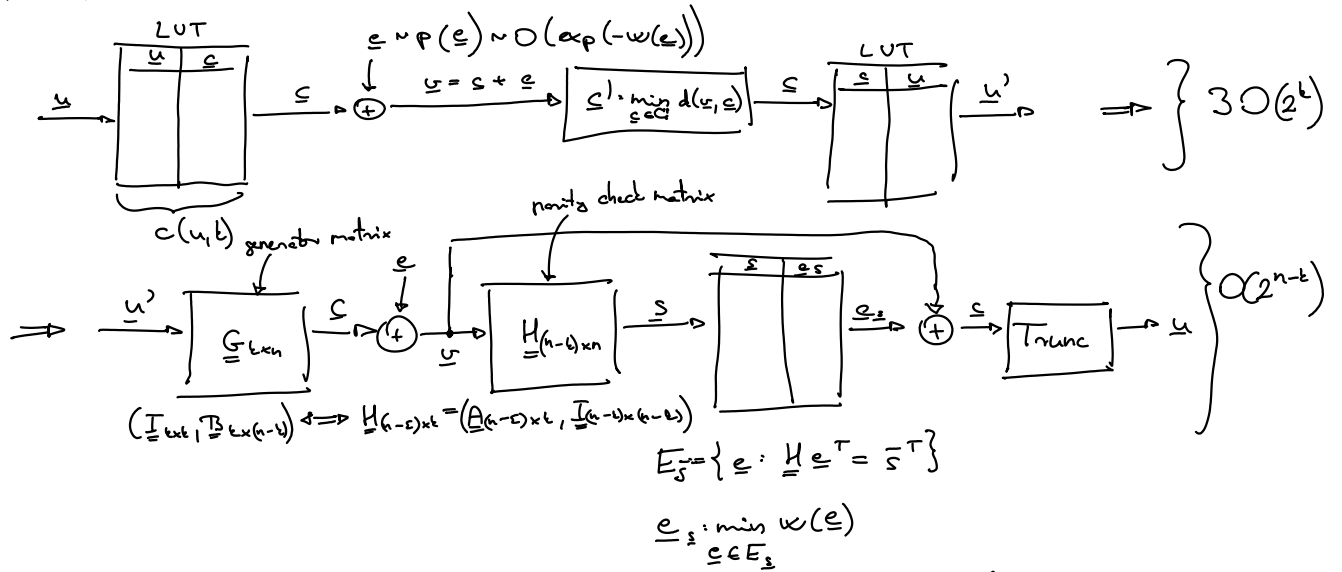 LUT
u c
u
c
e ~ p(e) ~ O(exp(-w(e)))
+
v = c + e
c': min d(v,c)
c∈C
c
LUT
c u
u'
⇒ } 3 O(2^k)
C(n,k)
generator matrix
parity check matrix
⇒ u'
G k×n
c
e
+
v
H (n-k)×n
s
s e_s
e_s
+
c
Trunc
u
} O(2^{n-k})
(I k×k, B k×(n-k)) ⇔ H (n-k)×k = (A (n-k)×k, I (n-k)×(n-k))
E_s = { e : H e^T = s^T }
e_s : min w(e)
e∈E_s